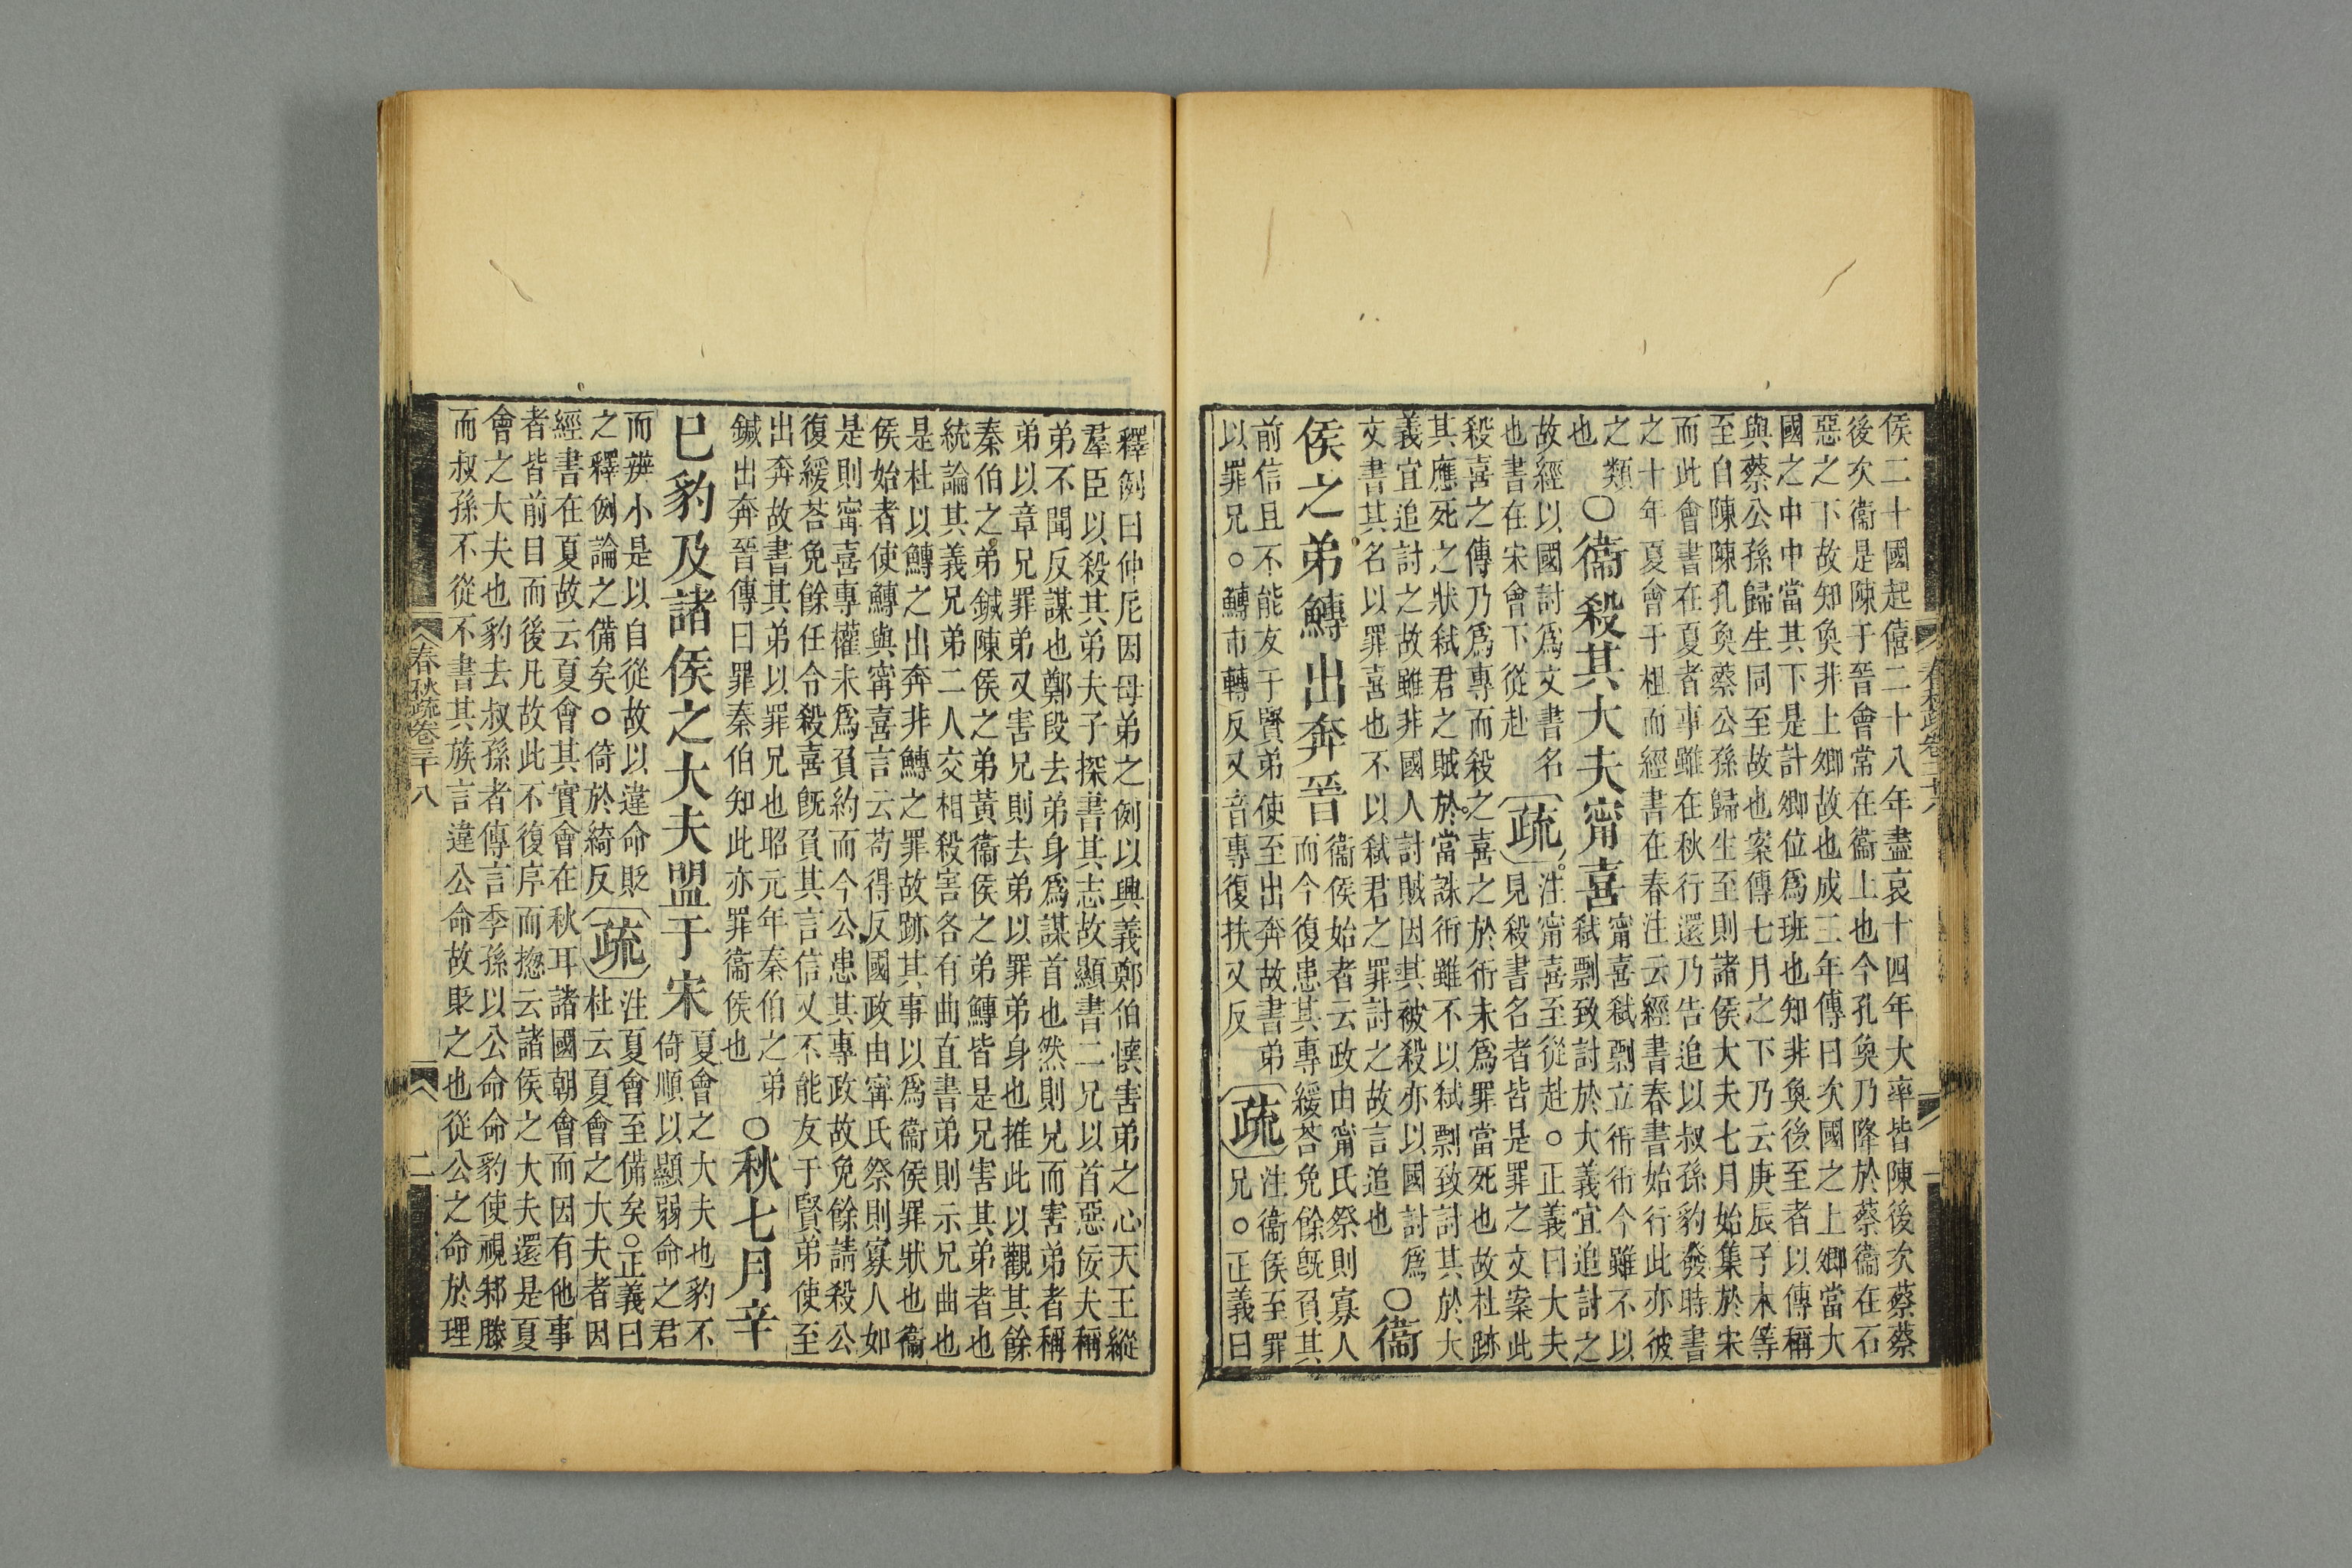 侯二十國起僖二十八年盡哀十四年大率皆陳後次蔡蔡
後次衞是陳于晉會常在衞上也今孔奐乃降於蔡衞在石
惡之下故知奐非上卿故也成三年傳曰次國之上卿當大
國之中中當其下是計卿位爲班也知非奐後至者以傳稱
與蔡公孫歸生同至故也案傳七月之下乃云庚辰子木等
至自陳陳孔奐蔡公孫歸生至則諸侯大夫七月始集於宋
而此會書在夏者事雖在秋行還乃告追以叔孫豹發時書
之十年夏會于柤而經書在春注云經書春書始行此亦彼
之類
也
〇衞殺其大夫甯喜
甯喜弑剽立衎衎今雖不以
弑剽致討於大義宜追討之
故經以國討爲文書名
也書在宋會下從赴
疏
注甯喜至從赴。正義曰大夫
見殺書名者皆是罪之文案此
殺喜之傳乃爲專而殺之喜之於衎未爲罪當死也故杜跡
其應死之狀弑君之賊於當誅衎雖不以弑剽致討其於大
義宜追討之故雖非國人討賊因其被殺亦以國討爲
文書其名以罪喜也不以弑君之罪討之故言追也
〇衞
侯之弟鱄出奔晉
衞侯始者云政由甯氏祭則寡人
而今復患其專緩荅免餘旣負其
前信且不能友于賢弟使至出奔故書弟
以罪兄。鱄市轉反又音專復扶又反
疏
注衞侯至罪
兄。正義曰
春秋疏卷三十八
一
釋例曰仲尼因母弟之例以興義鄭伯懷害弟之心天王縱
羣臣以殺其弟夫子探書其志故顯書二兄以首惡佞夫稱
弟不聞反謀也鄭段去弟身爲謀首也然則兄而害弟者稱
弟以章兄罪弟又害兄則去弟以罪弟身也推此以觀其餘
秦伯之弟鍼陳侯之弟黃衞侯之弟鱄皆是兄害其弟者也
統論其義兄弟二人交相殺害各有曲直書弟則示兄曲也
是杜以鱄之出奔非鱄之罪故跡其事以爲衞侯罪狀也衞
侯始者使鱄與甯喜言云苟得反國政由甯氏祭則寡人如
是則甯喜專權未爲負約而今公患其專政故免餘請殺公
復緩荅免餘任令殺喜旣負其言信又不能友于賢弟使至
出奔故書其弟以罪兄也昭元年秦伯之弟
鍼出奔晉傳曰罪秦伯知此亦罪衞侯也
〇秋七月辛
巳豹及諸侯之大夫盟于宋
夏會之大夫也豹不
倚順以顯弱命之君
而辨小是以自從故以違命貶
之釋例論之備矣。倚於綺反
疏
注夏會至備矣。正義曰
杜云夏會之大夫者因
經書在夏故云夏會其實會在秋耳諸國朝會而因有他事
者皆前目而後凡故此不復序而揔云諸侯之大夫還是夏
會之大夫也豹去叔孫者傳言季孫以公命命豹使視邾滕
而叔孫不從不書其族言違公命故貶之也從公之命於理
春秋疏卷三十八
二